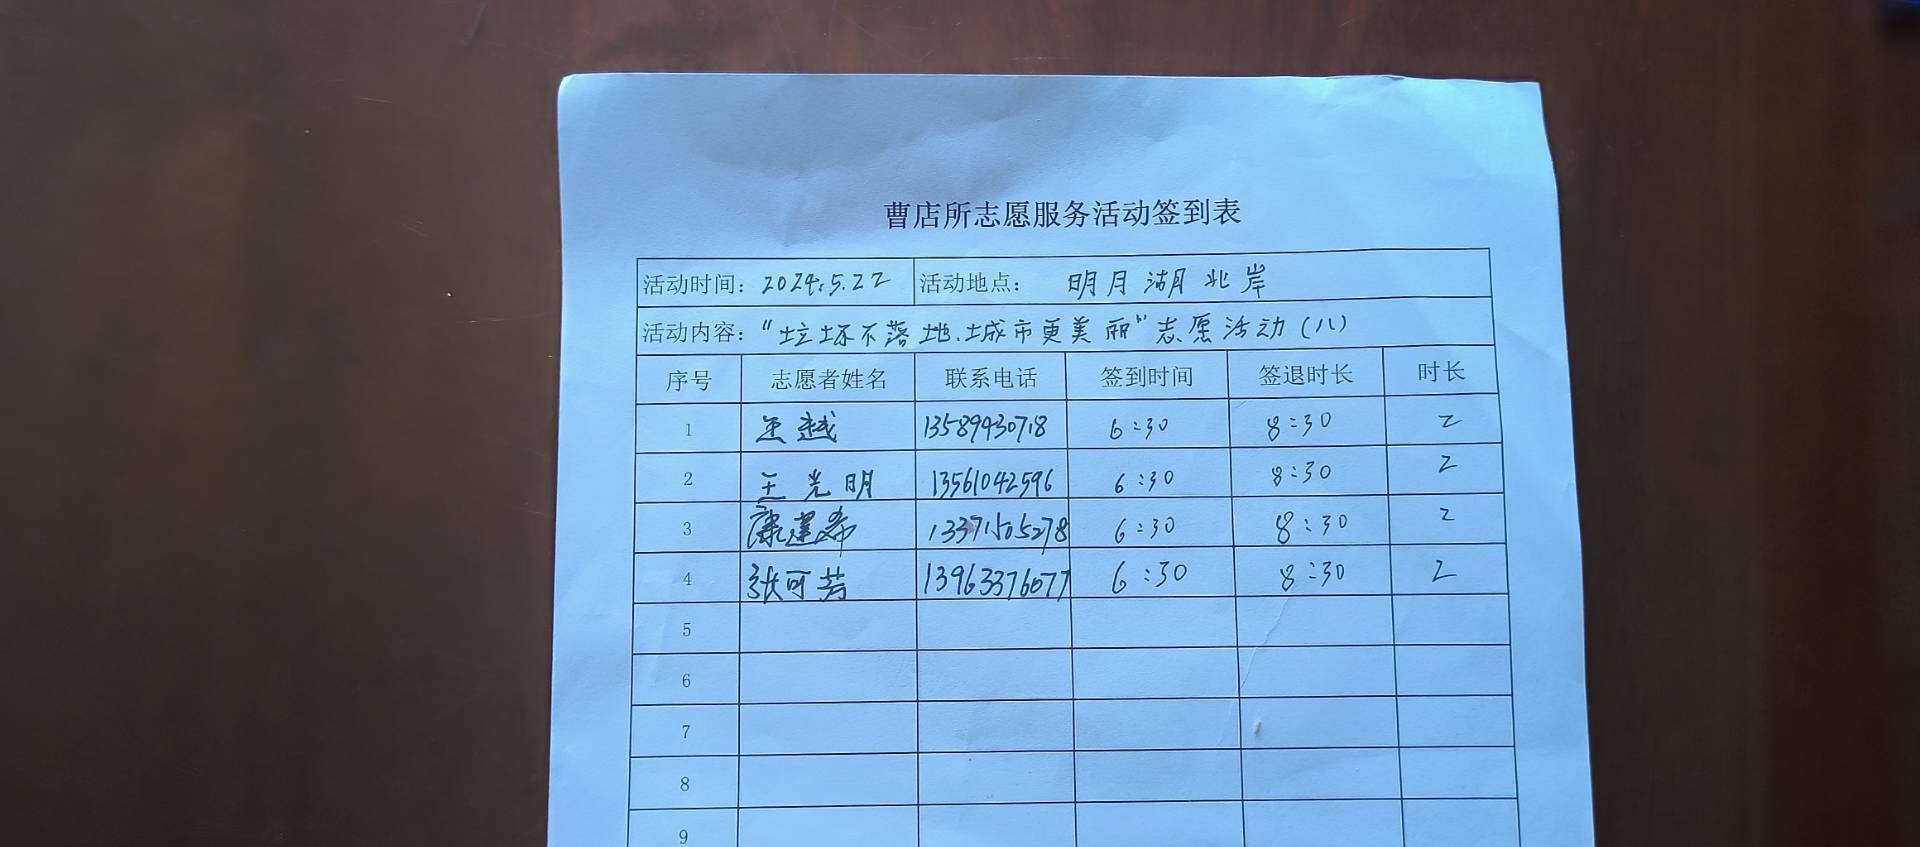 曹店所志愿服务活动签到表
活动时间：2024.5.22 活动地点： 明月湖北岸
活动内容：“垃圾不落地.城市更美丽”志愿活动（八）
序号 志愿者姓名 联系电话 签到时间 签退时长 时长
1 王越 13589430718 6:30 8:30 2
2 王光明 13561042596 6:30 8:30 2
3 康建希 13371505278 6:30 8:30 2
4 张可芳 13963376077 6:30 8:30 2
5
6
7
8
9